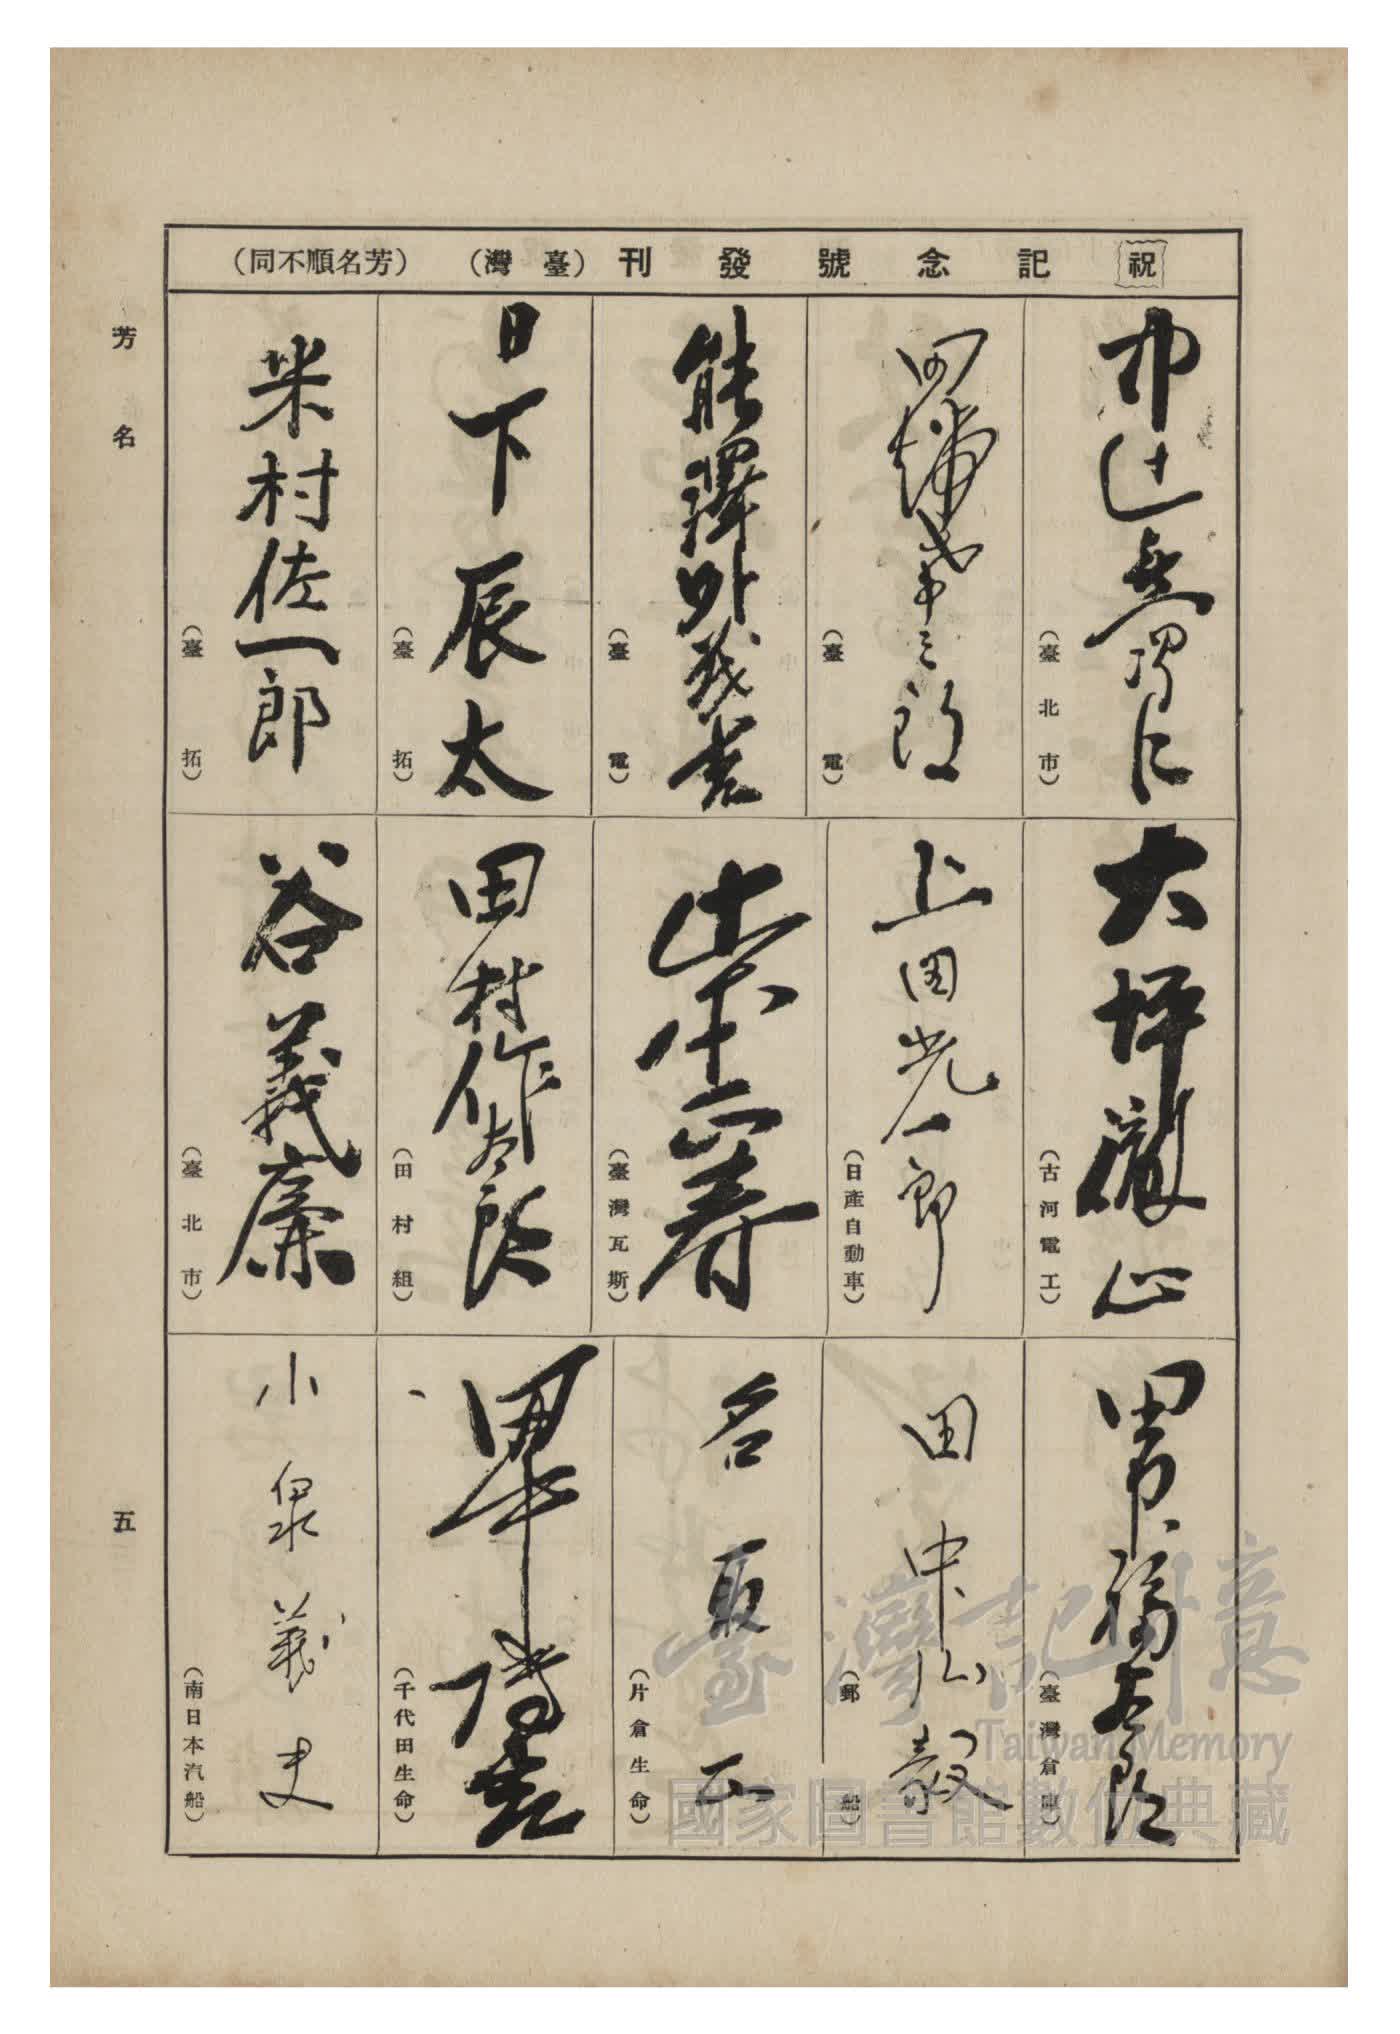 祝 記念號發刊（臺灣）（芳名順不同）
（臺北市）
四蟠
三郎
（臺電）
能澤外茂吉
（臺電）
日下辰太
（臺拓）
米村佐一郎
（臺拓）
大坪徹心
（古河電工）
上田光一郎
（日產自動車）
（臺灣瓦斯）
田村作太郎
（田村組）
谷義廉
（臺北市）
福太郎
（臺灣倉庫）
田中
毅
（郵船）
名取正
（片倉生命）
（千代田生命）
小泉義史
（南日本汽船）
芳名
五
臺灣記憶
Taiwan Memory
國家圖書館數位典藏